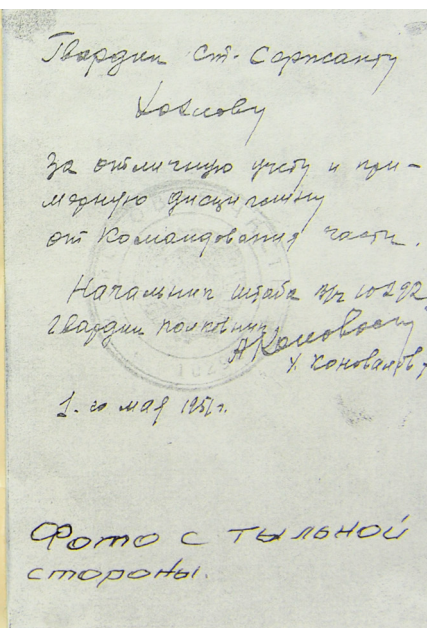 Гвардии ст. Сержанту
Козлову
За отличную учебу и при-
мерную дисциплину
от Командования части.
Начальник штаба в/ч 10292
гвардии полковник
Коновалов
1-го мая 195 г.
Фото с тыльной
стороны.